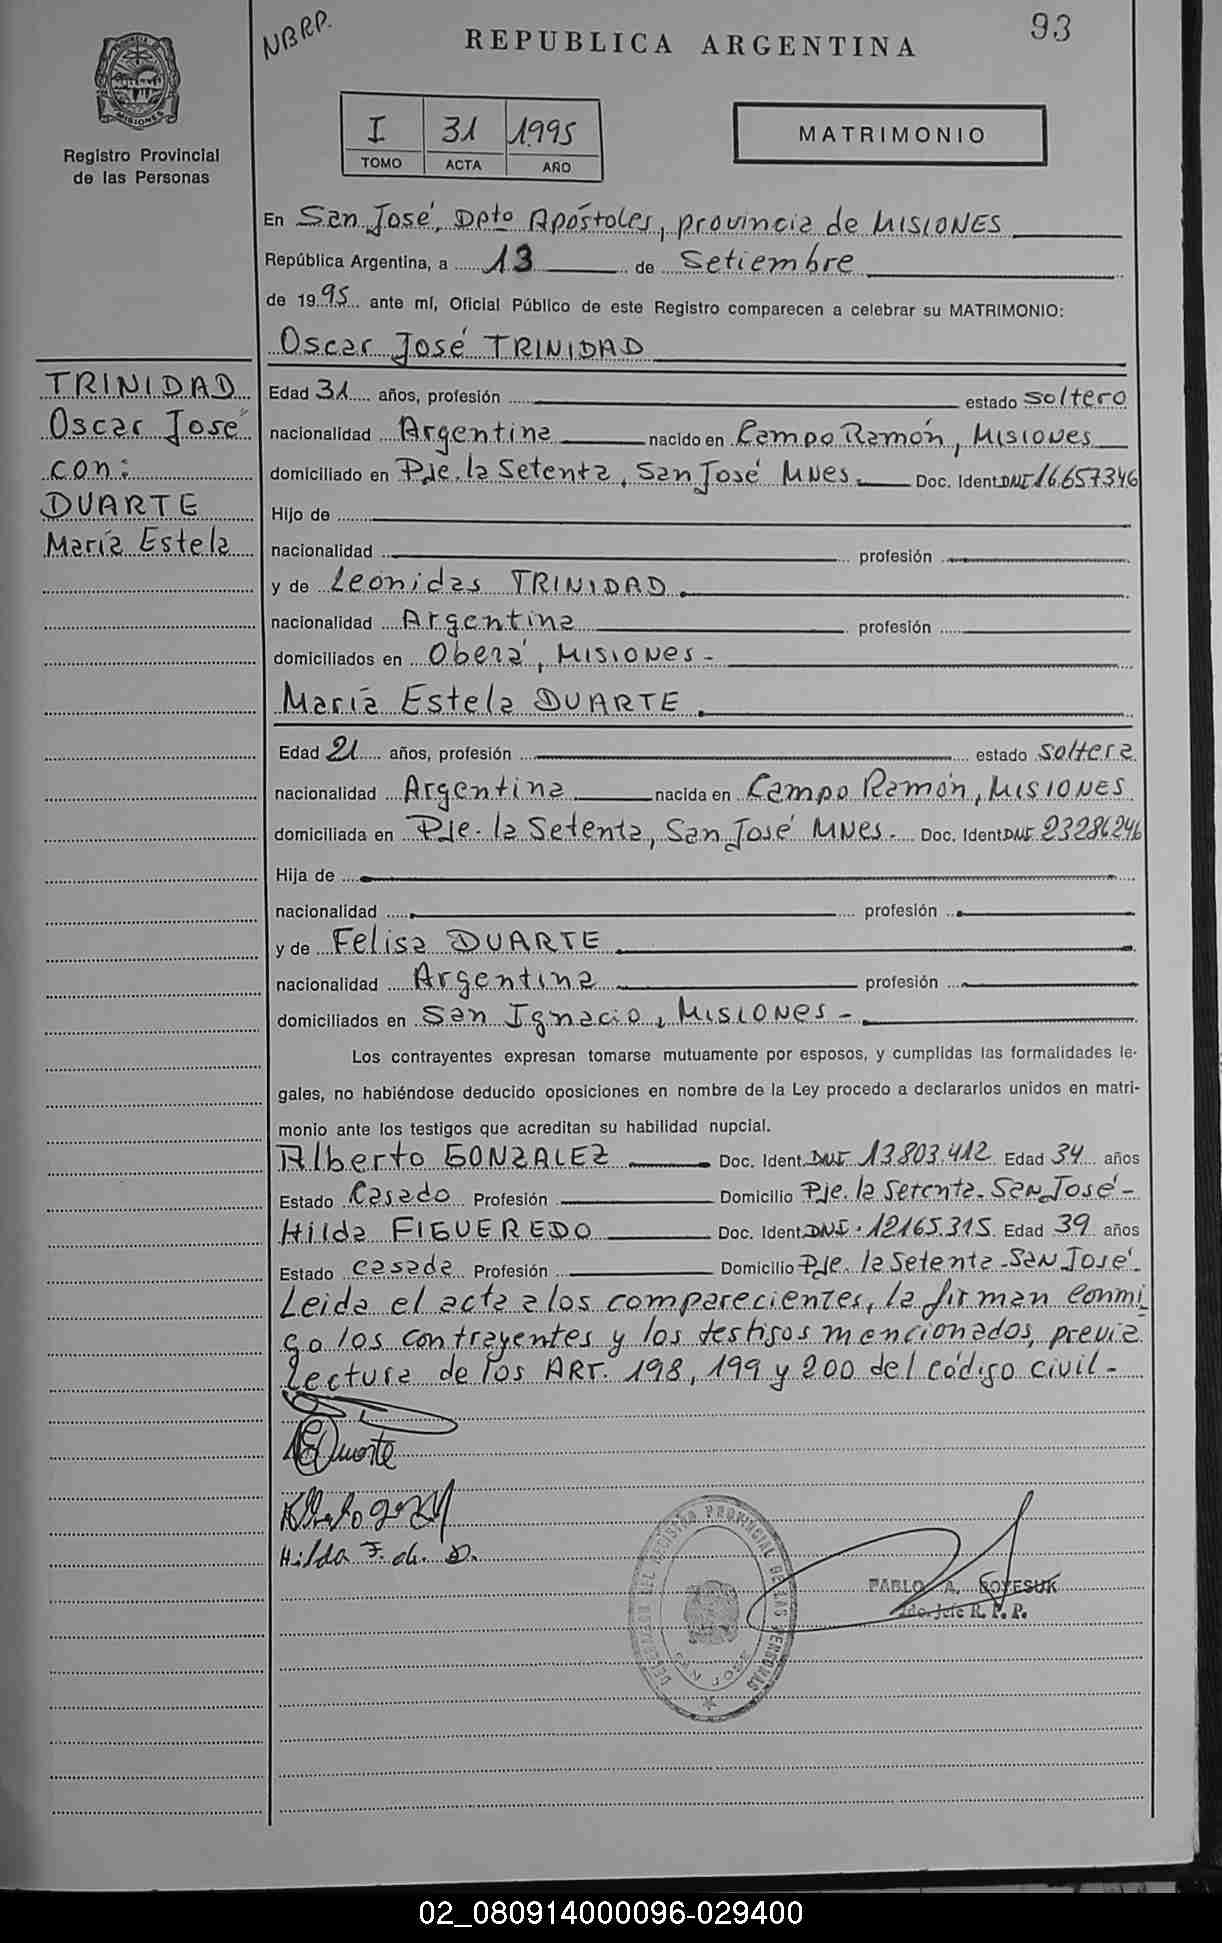 NBRP.
REPUBLICA ARGENTINA
93
PROVINCIA DE MISIONES
Registro Provincial
de las Personas
I 31 1995
TOMO ACTA AÑO
MATRIMONIO
En San José, Dpto Apóstoles, provincia de MISIONES
República Argentina, a 13 de Setiembre
de 1995 ante mí, Oficial Público de este Registro comparecen a celebrar su MATRIMONIO:
Oscar José TRINIDAD
TRINIDAD
Oscar José
con:
DUARTE
María Estela
Edad 31 años, profesión estado soltero
nacionalidad Argentina nacido en Campo Ramón, MISIONES
domiciliado en Pje. la Setenta, San José MNES. Doc. Ident. DNI 16.657346
Hijo de
nacionalidad profesión
y de Leónidas TRINIDAD
nacionalidad Argentina profesión
domiciliados en Oberá, MISIONES -
María Estela DUARTE
Edad 21 años, profesión estado soltera
nacionalidad Argentina nacida en Campo Ramón, MISIONES
domiciliada en Pje. la Setenta, San José MNES. Doc. Ident. DNI 23286246
Hija de
nacionalidad profesión
y de Felisa DUARTE
nacionalidad Argentina profesión
domiciliados en San Ignacio, MISIONES -
Los contrayentes expresan tomarse mutuamente por esposos, y cumplidas las formalidades le-
gales, no habiéndose deducido oposiciones en nombre de la Ley procedo a declararlos unidos en matri-
monio ante los testigos que acreditan su habilidad nupcial.
Alberto GONZALEZ Doc. Ident. DNI 13803.412 Edad 34 años
Estado Casado Profesión Domicilio Pje. la Setenta. San José -
Hilda FIGUEREDO Doc. Ident. DNI. 12165.315 Edad 39 años
Estado casada Profesión Domicilio Pje. la Setenta - San José -
Leida el acta a los comparecientes, la firman conmi
go los contrayentes y los testigos mencionados, previa
lectura de los ART. 198, 199 y 200 del código civil -
Duarte
Hilda F. de. D.
DELEGACION DEL REGISTRO PROVINCIAL DE LAS PERSONAS
SAN JOSE
PABLO A. BOYESUK
Jefe R. P. P.
02_080914000096-029400